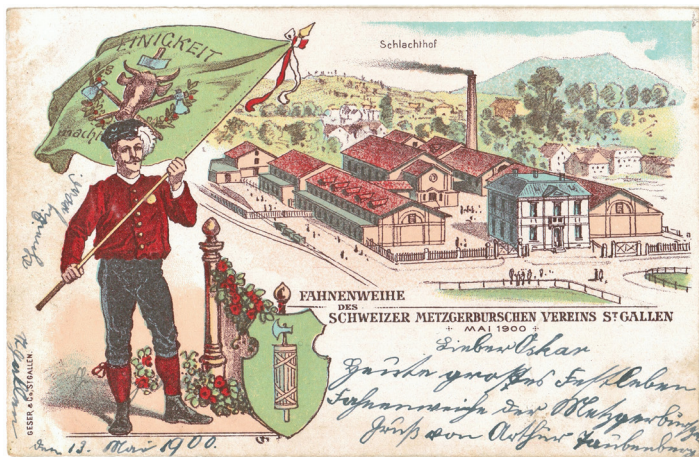 EINIGKEIT
macht
Schlachthof
FAHNENWEIHE
DES
SCHWEIZER METZGERBURSCHEN VEREINS ST GALLEN
MAI 1900
Lieber Oskar
Heute großes Festleben
Fahnenweihe der Metzgerbursch
Gruß von Arthur Taubenberg
den 13. Mai 1900.
GESER & Co, ST GALLEN.